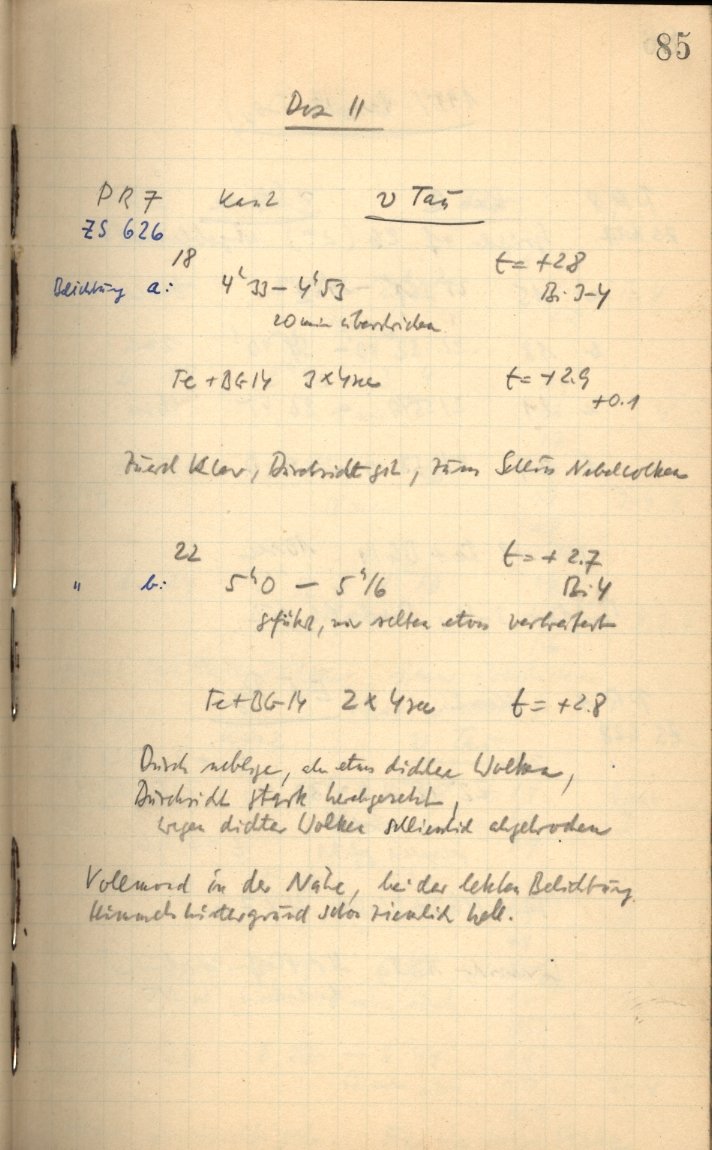 85
Dez 11
PR 7 Kan 2 υ Tau
ZS 626
18 t = +2.8
Belichtung a: 4ʰ33 – 4ʰ53 Bi 3-4
20 min überstrichen
Fe + BG 14 3 × 4 sec t = +2.9
+0.1
Zuerst klar, Durchsicht gut, zum Schluss Nebelwolken
22 t = +2.7
" b: 5ʰ0 – 5ʰ16 Bi 4
geführt, nur selten etwas verbreitert
Fe + BG 14 2 × 4 sec t = +2.8
Durch neblige, etwas dichtere Wolken,
Durchsicht stark herabgesetzt,
wegen dichter Wolken schliesslich abgebrochen
Vollmond in der Nähe, bei der letzten Belichtung
Himmelshintergrund schon ziemlich hell.